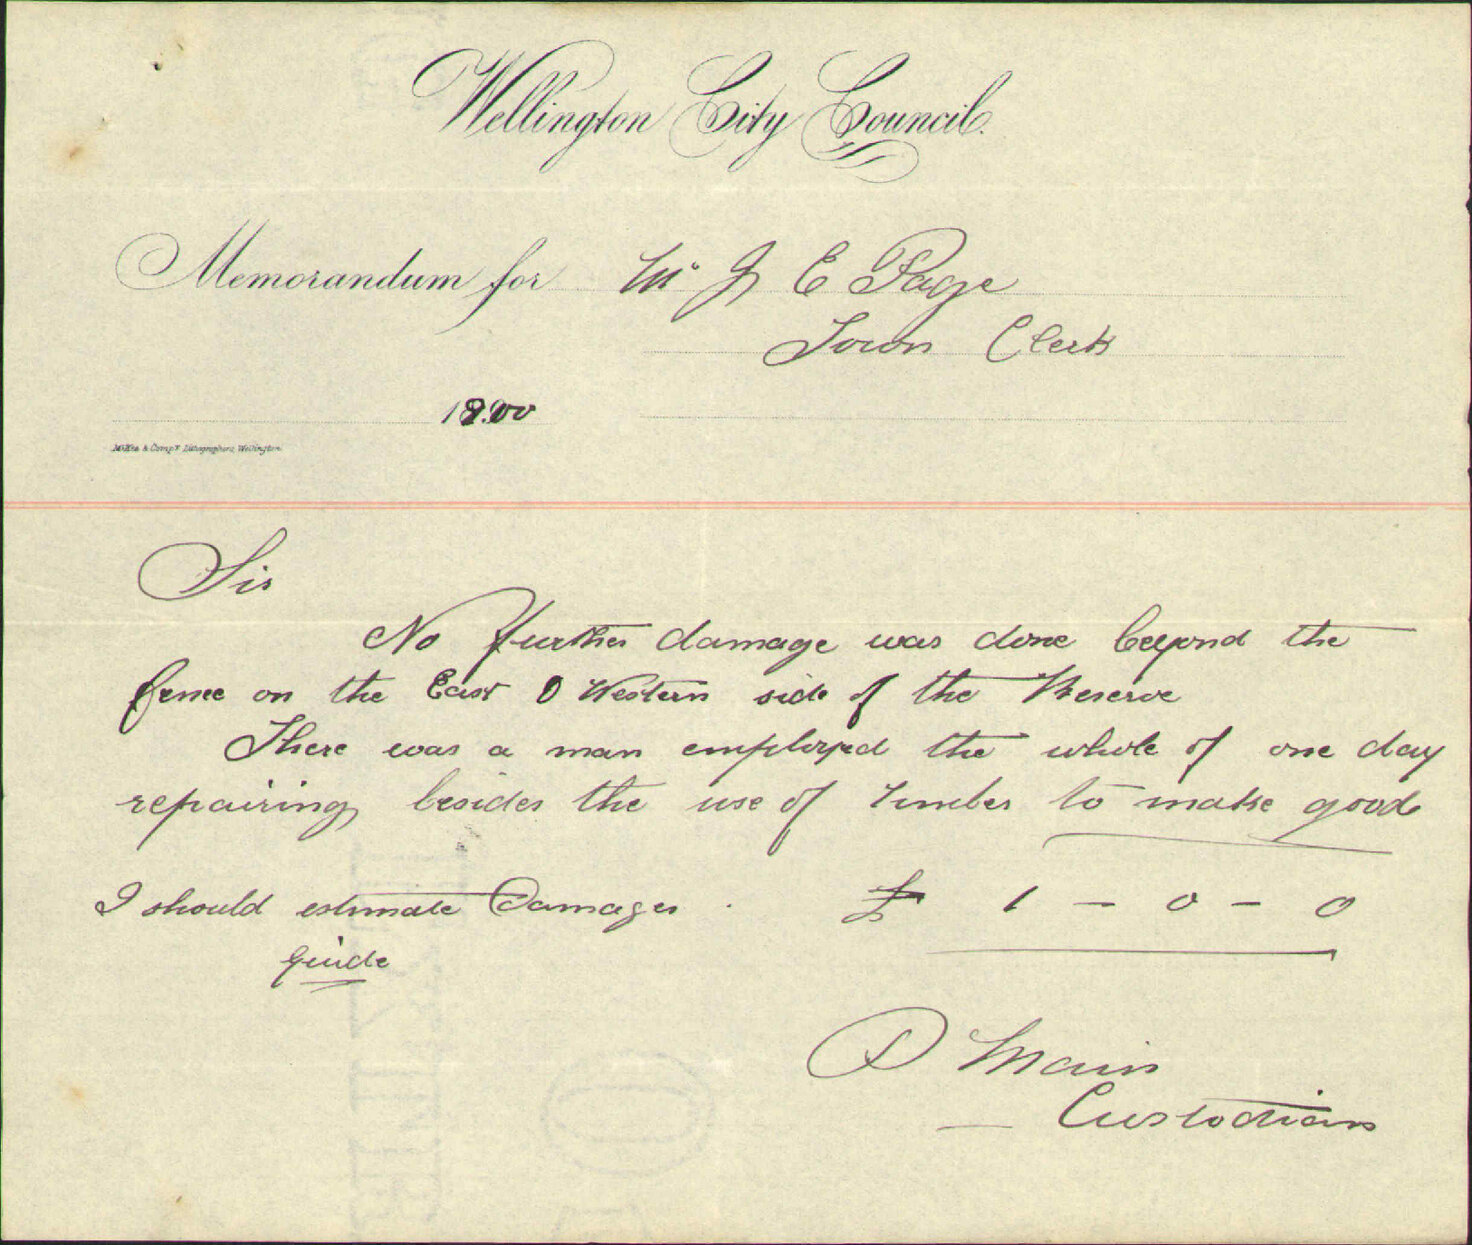 Wellington City Council.
Memorandum for Mr J E Page
Town Clerk
1900
McKee & Compy Lithographers, Wellington
Sir
No further damage was done beyond the
fence on the East & Western side of the Reserve
There was a man employed the whole of one day
repairing besides the use of Timber to make good
I should estimate Damages . £ 1 - 0 - 0
quide
D Main
Custodian